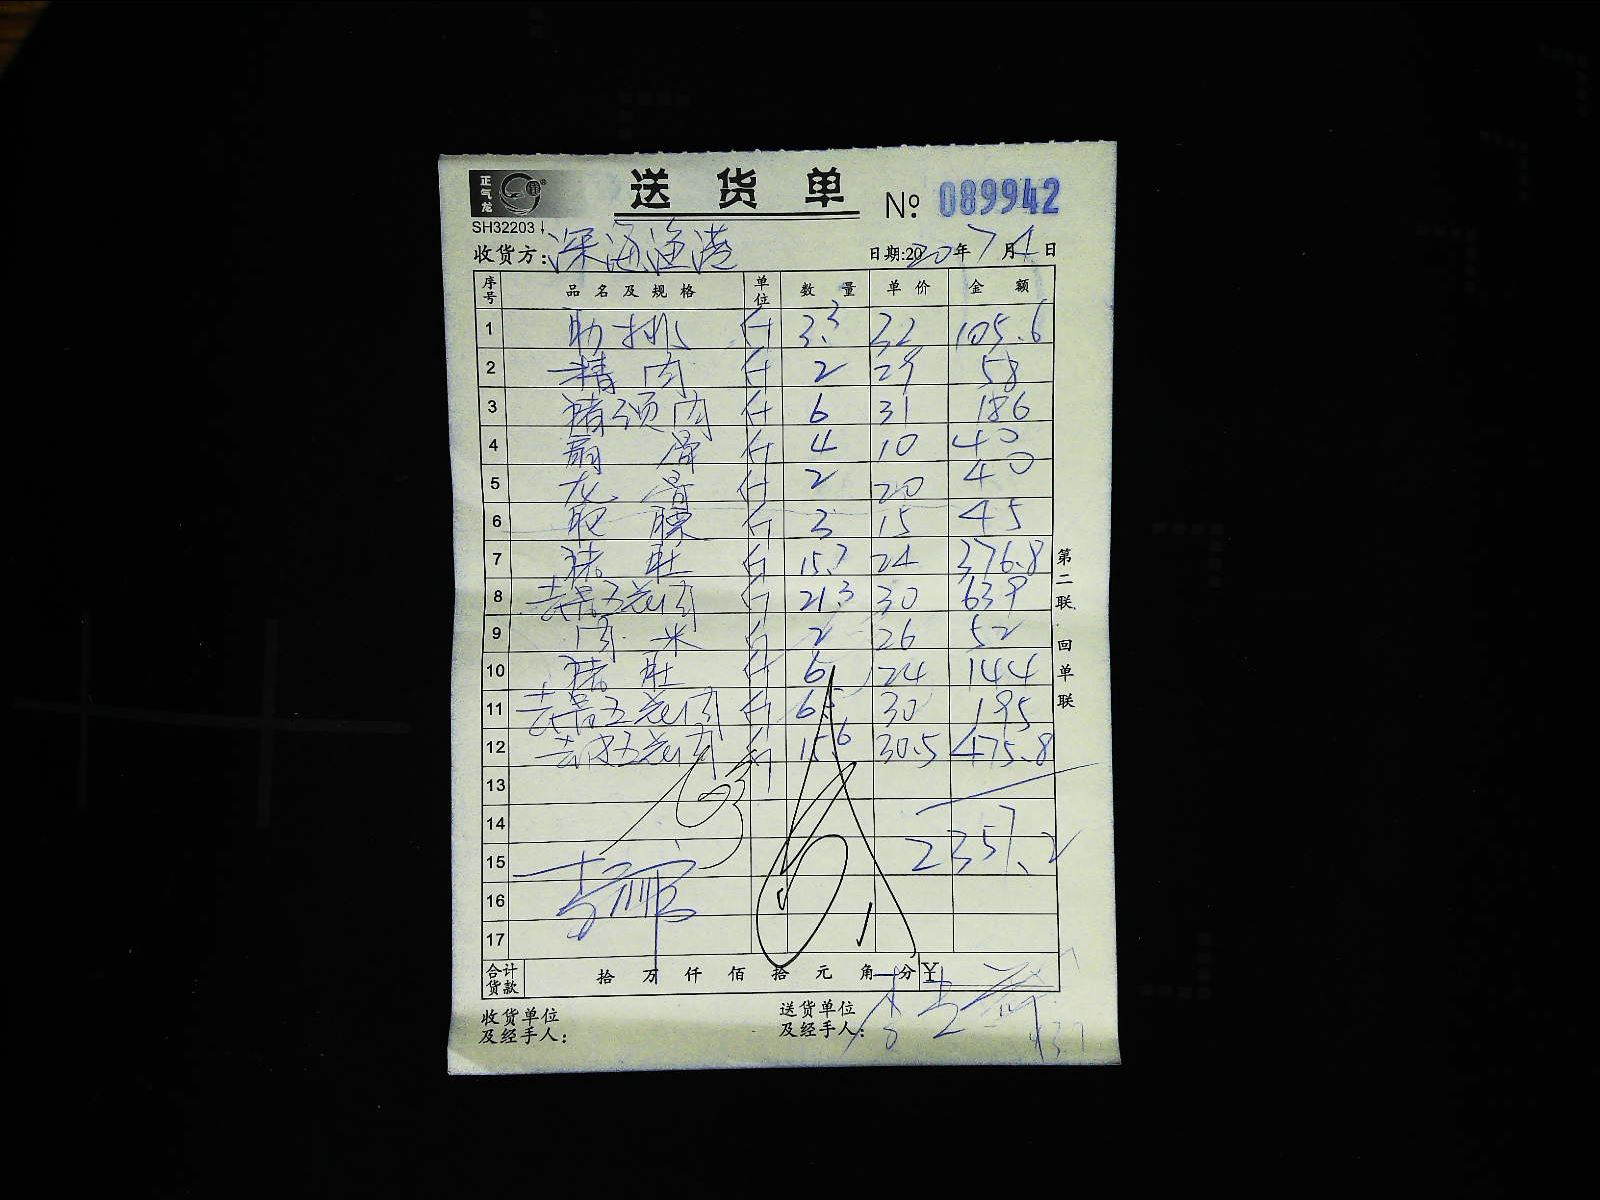 正气龙
送货单 № 089942
SH32203
收货方: 深海渔港 日期:2020年7月4日
序号 品名及规格 单位 数量 单价 金额
1 肋排 斤 3.3 32 105.6
2 精肉 斤 2 29 58
3 猪颈肉 斤 6 31 186
4 扇骨 斤 4 10 40
5 龙骨 斤 2 20 40
6 肥膘 斤 3 15 45
7 猪肚 斤 15.7 24 376.8
8 去骨五花肉 斤 21.3 30 639
9 肉米 斤 2 26 52
10 猪肚 斤 6 24 144
11 去骨五花肉 斤 6.5 30 195
12 去皮五花肉 斤 15.6 30.5 475.8
13
14
15 2357.2
16
17
合计货款 拾万仟佰拾元角分 ¥
收货单位及经手人:
送货单位及经手人:
第二联 回单联